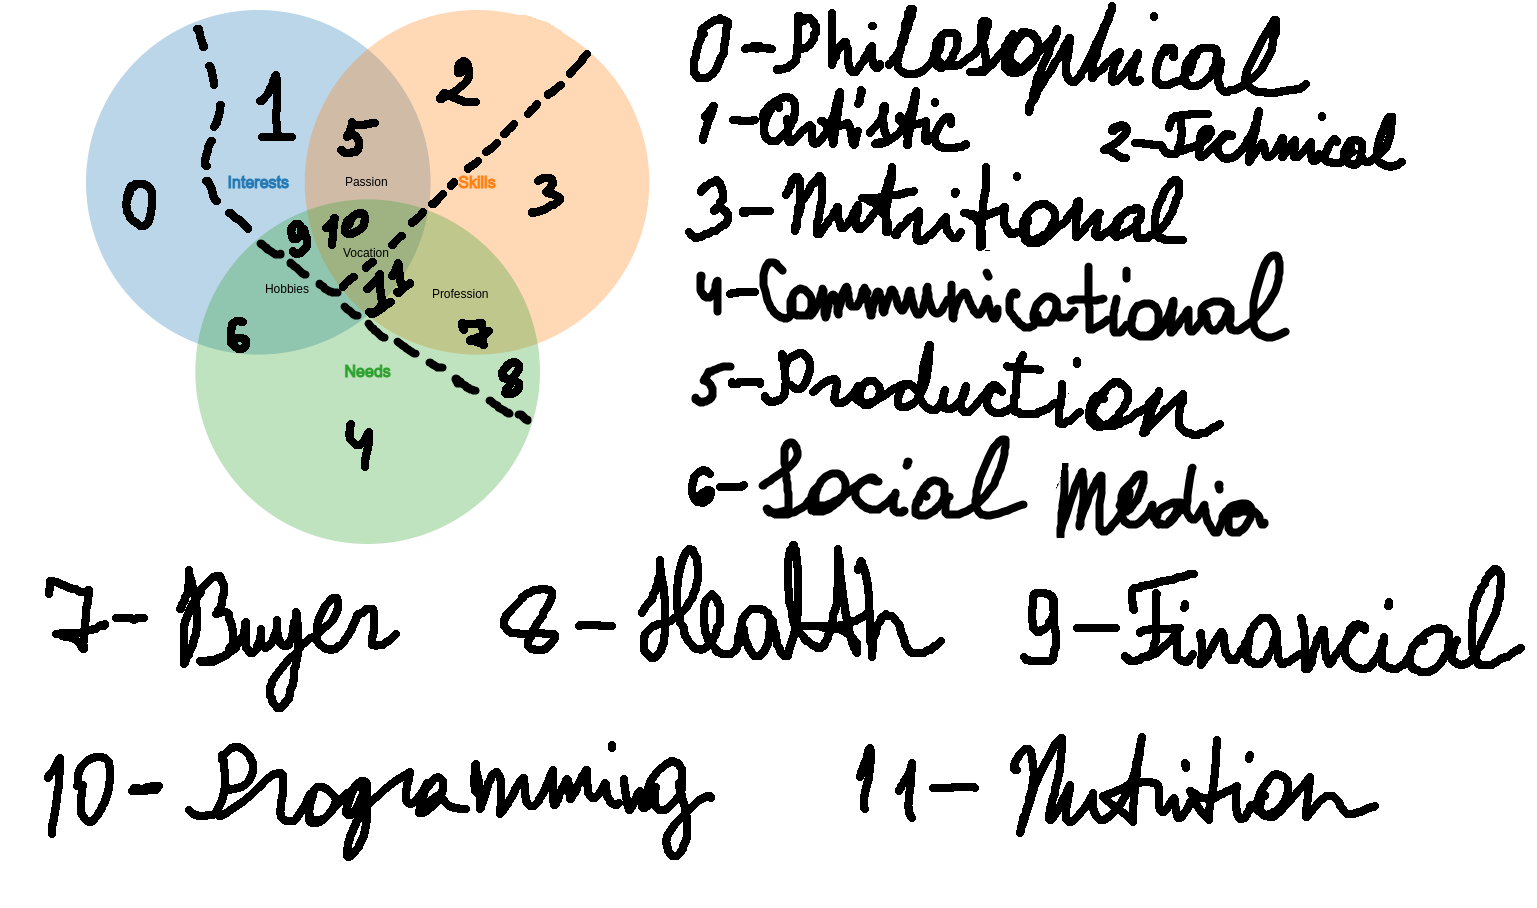 1
2
5
Interests
Passion
Skills
0
3
9
10
Vocation
11
Hobbies
Profession
6
7
Needs
8
4
0-Philosophical
1-Artistic
2-Technical
3-Nutritional
4-Communicational
5-Production
6-Social Media
7- Buyer
8-Health
9-Financial
10- Programming
11- Nutrition